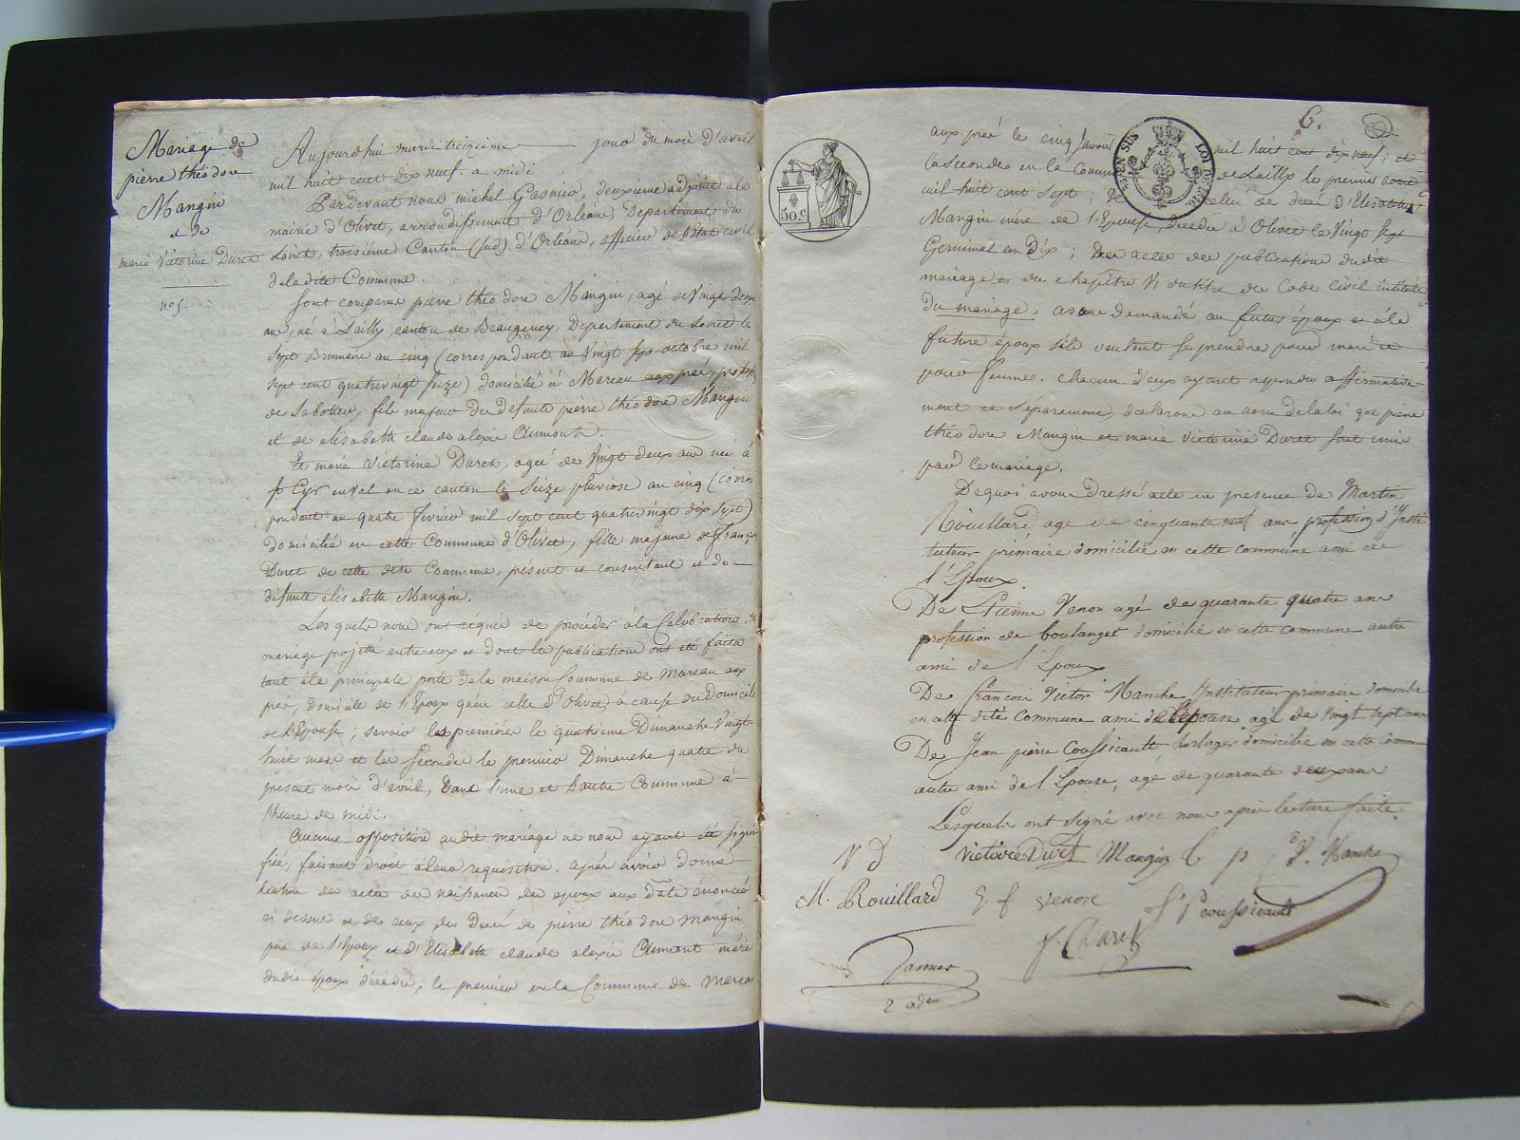 Mariage de
pierre théodore
Mangin
et de
marie Victorine Duret
no 5
Aujourd'hui mardi treizieme jour du mois d'avril
mil huit cent dix neuf. a midi
Pardevant nous michel Gasnier, deuxieme adjoint a la
mairie d'Olivet, arrondissement d'Orléans, Departement du
Loiret, troisieme Canton (sud) d'Orléans, officier de l'état civil
de la dite Commune.
Sont comparus pierre théodore Mangin, agé de Vingt deux
ans, né à Lailly, canton de Beaugency, Departement du Loiret le
sept Brumaire an cinq (correspondant au Vingt huit octobre mil
sept cent quatrevingt seize) domicilié à Mareau aux prés, profession
de Sabotier, fils majeur de défunts pierre théodore Mangin
et de elisabeth claude alexie Aumont.
Et marie victorine Duret, agée de Vingt deux ans née à
St Cyr en Val en ce canton le seize pluviose an cinq (corres
pondant au quatre fevrier mil sept cent quatrevingt dix sept)
domiciliée en cette Commune d'Olivet, fille majeure de françois
Duret de cette dite Commune, présent et consentant et de
défunte élisabeth Mangin.
Lesquels nous ont requis de procéder à la Célébration du
mariage projetté entre eux et dont les publications ont été faites
tant à la principale porte de la maison Commune de Mareau aux
prés, domicile de l'Epoux qu'à celle d'Olivet à cause du domicile
de l'Epouse; savoir les premières le quatrieme Dimanche Vingt
huit mars et les secondes le premier Dimanche quatre du
présent mois d'avril, dans l'une et l'autre Commune à
l'heure de midi.
Aucune opposition audit mariage ne nous ayant été signi
fiée, faisant droit à leur requisition. après avoir donné
lecture des actes de naissance des époux aux dates énoncées
ci dessus et de ceux de Décès de pierre théodore Mangin
père de l'Epoux et d'Elisabeth claude alexie Aumont mère
dudit époux décédés, le premier en la Commune de Mareau
6.
aux prés le cinq mil huit cent dix neuf; et
la seconde en la Commune de Lailly le premier
mil huit cent sept; de celui de décès d'Elisabeth
Mangin mère de l'Epouse, décédée à Olivet le Vingt sept
Germinal an Dix; des actes de publications dudit
mariage et du chapitre VI du titre du Code Civil intitulé
du mariage, avons demandé au futur époux et à la
future épouse s'ils veulent se prendre pour mari et
pour femme. chacun d'eux ayant répondu affirmative
ment et séparement, déclarons au nom de la loi que pierre
théodore Mangin et marie victorine Duret sont unis
par le mariage.
De quoi avons Dressé acte en presence de Martin
Rouillard, agé de cinquante neuf ans profession d'Insti
tuteur primaire domicilié en cette commune ami de
l'Epoux.
De Etienne Venon agé de quarante quatre ans
profession de boulanger domicilié en cette commune autre
ami de l'Epoux
De françois Victor Manche Instituteur primaire domicilié
en cette dite Commune ami de l'épouse agé de Vingt sept ans
De Jean pierre Coussicault horloger domicilié en cette comm
autre ami de l'Epouse, agé de quarante deux ans
Lesquels ont signé avec nous après lecture faite.
V D Victoire Duret Mangin V. Manche
M. Rouillard E f venon J P coussicault
f. Duret
Gasnier
2 adj
50.C
EN SUS
LOI DE